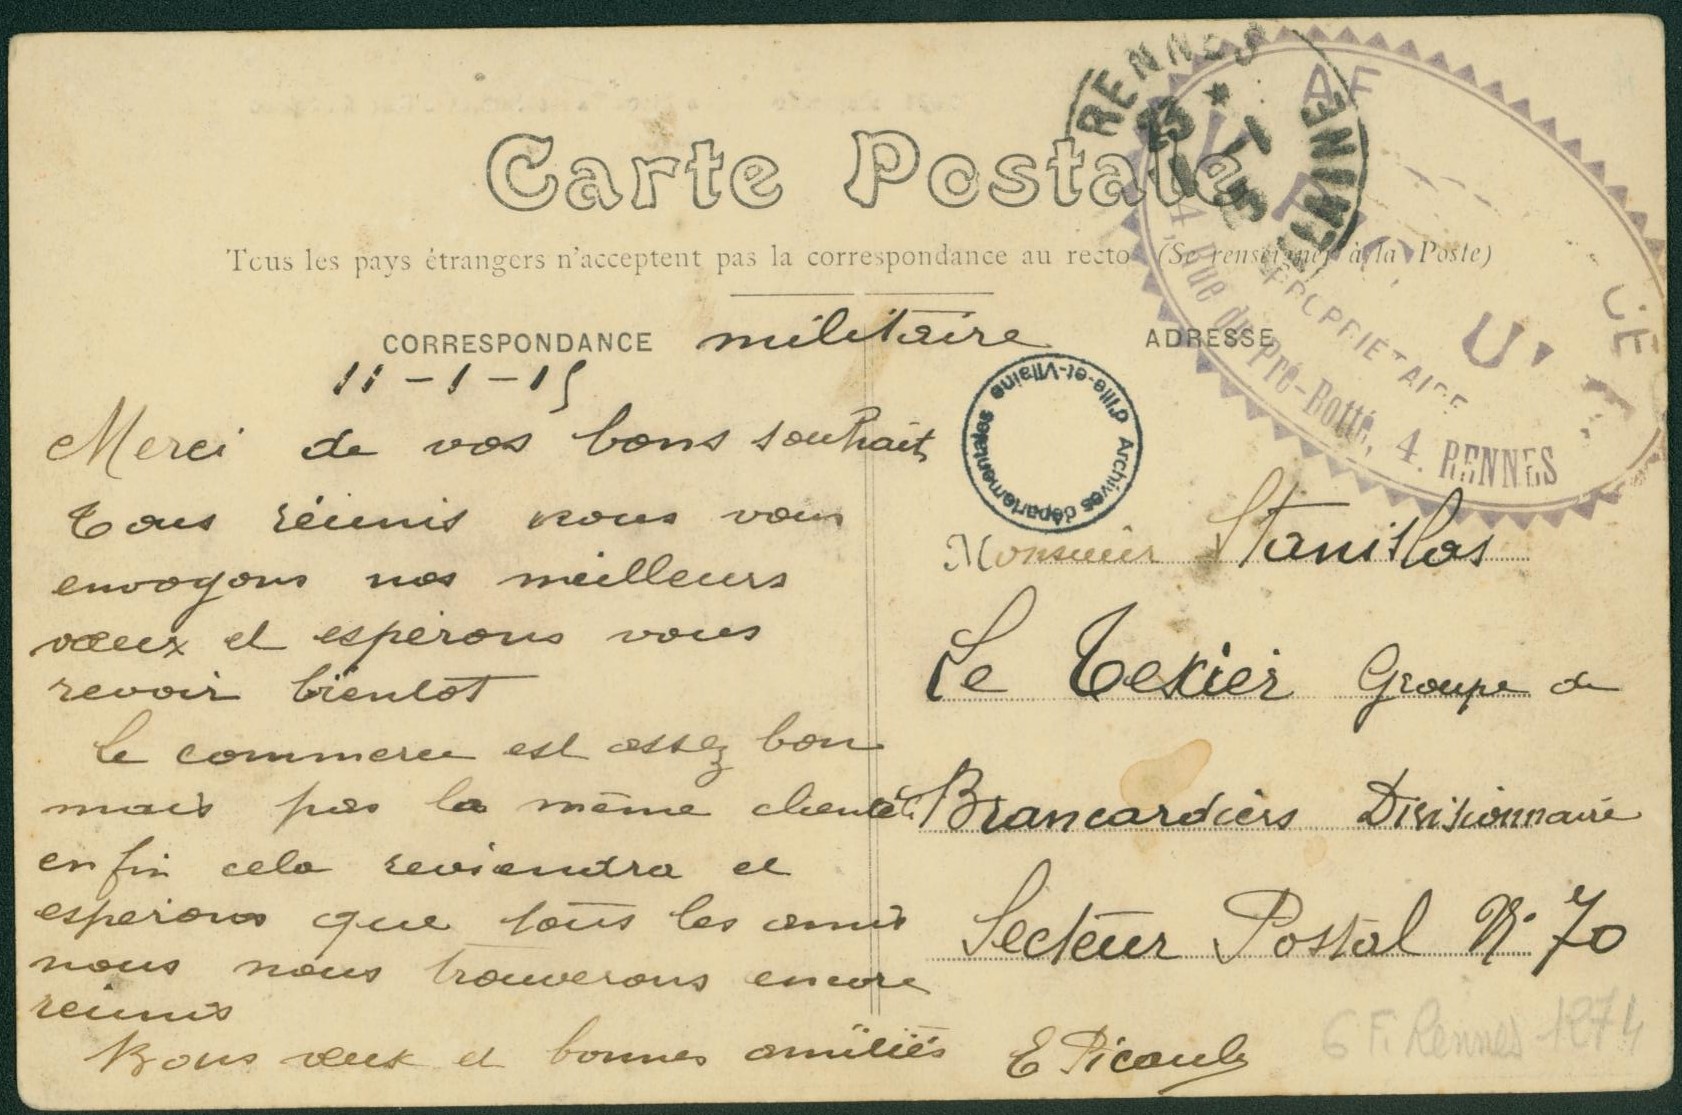 Carte Postale
Tous les pays étrangers n'acceptent pas la correspondance au recto (Se renseigner à la Poste)
CORRESPONDANCE militaire
11-1-15
Merci de vos bons souhait
Tous réunis nous vous
envoyons nos meilleurs
vœux et esperons vous
revoir bientot
le commerce est assez bon
mais pas la même
enfin cela reviendra et
esperons que tous les amis
nous nous trouverons encore
reunis
Bons vœux et bonnes amitiés
E Picault
ADRESSE
Monsieur Stanislas
Le Texier Groupe de
Brancardiers Divisionnaire
Secteur Postal N° 70
RENNES
VILAINE
PROPRIÉTAIRE
4, Rue du Pré-Botté, 4. RENNES
Archives départementales d'Ille-et-Vilaine
6 Fi Rennes 1274